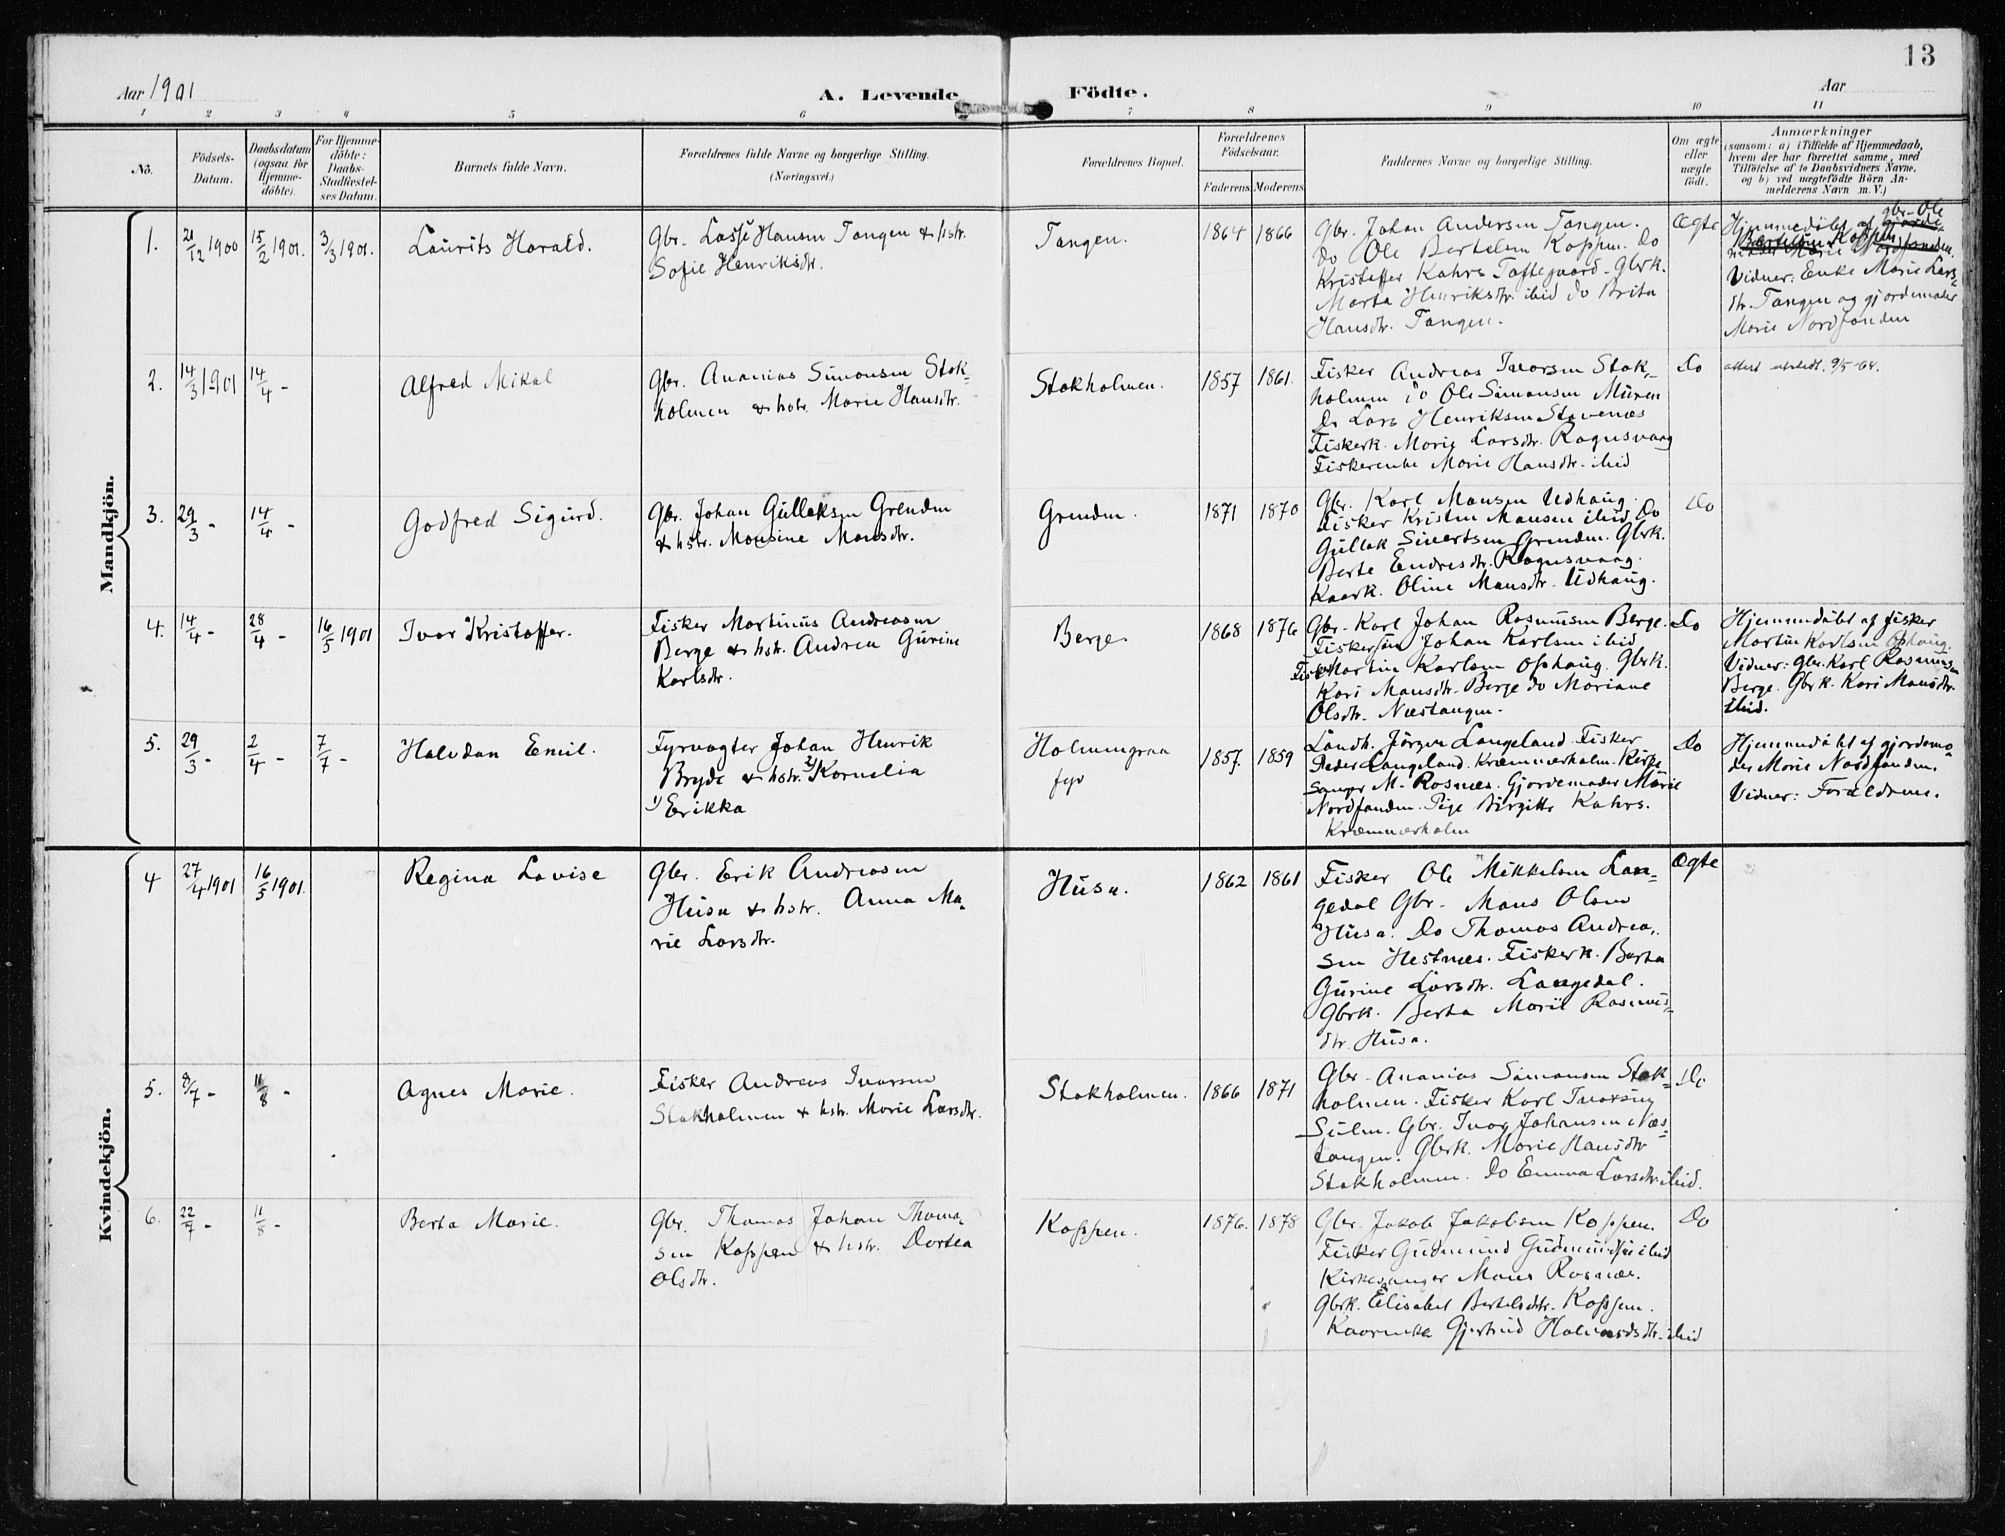 13
Aar 1901
A. Levende Födte.
Aar
1 2 3 4 5 6 7 8 9 10 11
No.
Födsels-
Datum.
Daabsdatum
(ogsaa for
Hjemme-
döbte).
For Hjemme-
döbte:
Daabs-
Stadfæstel-
ses Datum.
Barnets fulde Navn.
Forældrenes fulde Navne og borgerlige Stilling.
(Næringsvei.)
Forældrenes Bopæl.
Forældrenes
Födselsaar.
Faderens. Moderens.
Faddernes Navne og borgerlige Stilling.
Om ægte
eller
uægte
født.
Anmærkninger
(saasom: a) i Tilfælde af Hjemmedaab,
hvem der har forrettet samme, med
Tilföielse af to Daabsvidners Navne,
og b) ved uægtefödte Börn An-
melderens Navn m. V.)
Mandkjön.
1. 21/12 1900 15/2 1901. 3/3 1901. Laurits Harald.
Gbr. Lasse Hansen Tangen & hstr.
Sofie Henriksdtr.
Tangen. 1864 1866
Gbr. Johan Andersen Tangen.
Do Ole Bertelsen Koppen. Do
Kristoffer Kahrs Toftegaard. Gbrk.
Marta Henriksdtr. ibid Do Brita
Hansdtr. Tangen.
Ægte
Hjemmedöbt af gbr. Ole
Bertelsen Koppen
Vidner: Enke Marie Lars-
dtr. Tangen og gjordemoder
Marie Nordfonden
2. 14/3 1901 14/4 - Alfred Mikal
Gbr. Ananias Simonsen Stok-
holmen & hstr. Marie Hansdtr.
Stokholmen. 1857 1861.
Fisker Andreas Ivarsen Stok-
holmen Do Ole Simonsen Muren
Do Lars Henriksen Stavenæs
Fiskerk. Marie Larsdtr. Ragnsvaag
Fiskerenke Marie Hansdtr. ibid
Do
attest utstedt. 9/5-64.
3. 29/3 - 14/4 - Godfred Sigurd.
Gbr. Johan Gullaksen Grenden
& hstr. Monsine Monsdtr.
Grenden. 1871 1870
Gbr. Karl Monsen Udhaug.
Fisker Kristen Monsen ibid Do
Gullak Sivertsen Grenden. Gbrk.
Berte Endresdtr. Ragnsvaag.
Kaark. Oline Monsdtr. Udhaug.
Do
4. 14/4 - 28/4 - 16/5 1901 Ivar Kristoffer.
Fisker Martinus Andreasen
Berge & hstr. Andrea Gurine
Karlsdtr.
Berge 1868 1876
Gbr. Karl Johan Rasmusen Berge.
Fiskersøn Johan Karlsen ibid
Fisker Martin Karlsen Ophaug. Gbrk.
Kari Monsdtr. Berge Do Mariane
Olsdtr. Næstangen.
Do
Hjemmedøbt af fisker
Martin Karlsen Ophaug.
Vidner: Gbr. Karl Rasmusen
Berge. Gbrk. Kari Monsdtr.
ibid.
5. 29/3 - 2/4 - 7/7 - Halvdan Emil.
Fyrvogter Johan Henrik
Bryde & hstr. 2) Kornelia
1) Erikka
Holmengraa
fyr
1857. 1859
Landh. Jörgen Langeland. Fisker
Peder Langeland. Kræmmerholm. Kirke
sanger M. Rosnes. Gjordemoder Marie
Nordfonden. Pige Birgitte Kahrs.
Kræmmerholm
Do
Hjemmedöbt af gjordemo-
der Marie Nordfonden.
Vidner: Forældrene.
Kvindekjön.
4 27/4 1901 16/5 1901. Regina Lovise
Gbr. Erik Andreasen
Husa & hstr. Anna Ma-
rie Larsdtr.
Husa. 1862 1861
Fisker Ole Mikkelsen Lan-
gedal Gbr. Mons Olsen
Husa. Do Thomas Andrea-
sen Hestnæs. Fiskerk. Berta
Gurine Larsdtr. Langedal.
Gbrk. Berta Marie Rasmus-
dtr. Husa.
Ægte
5. 8/7 - 11/8 - Agnes Marie.
Fisker Andreas Ivarsen
Stokholmen & hstr. Marie Larsdtr.
Stokholmen. 1866 1871
Gbr. Ananias Simonsen Stok-
holmen. Fisker Karl Ivarsen
Sulen. Gbr. Ivar Johansen Næs-
tangen. Gbrk. Marie Hansdtr
Stokholmen. Do Emma Larsdtr ibid.
Do
6. 22/7 - 11/8 - Berta Marie.
Gbr. Thomas Johan Thoma-
sen Koppen & hstr. Dortea
Olsdtr.
Koppen. 1876. 1878
Gbr. Jakob Jakobsen Koppen.
Fisker Gudmund Gudmundsen ibid
Kirkesanger Mons Rosnæs.
Gbrk. Elisabet Bertelsdtr. Koppen.
Kaarenke Gjertrud Halvardsdtr. ibid
Do